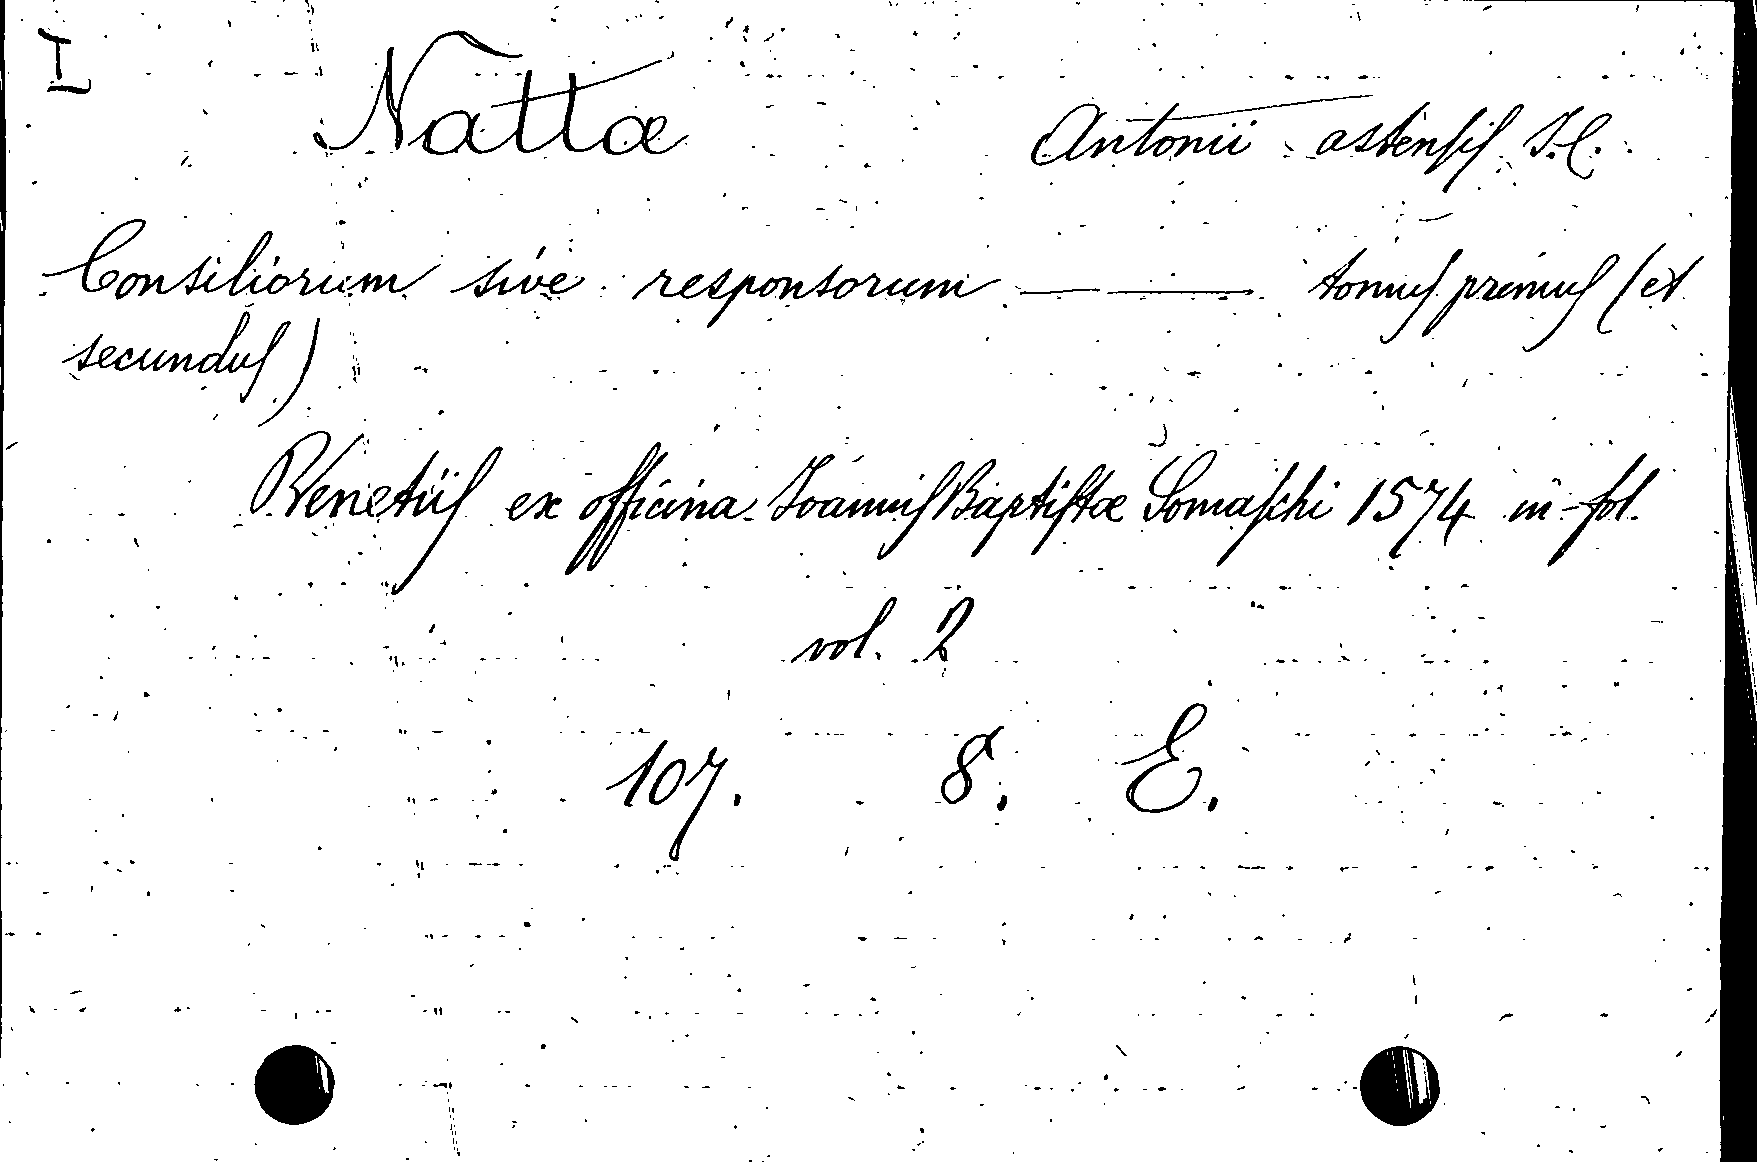 I
Nattæ Antonii astensis J.C.
Consiliorum sive responsorum —— tomus primus (et
secundus)
Venetiis ex officina Joannis Baptistæ Somaschi 1574 in-fol.
vol. 2
107. 8. E.